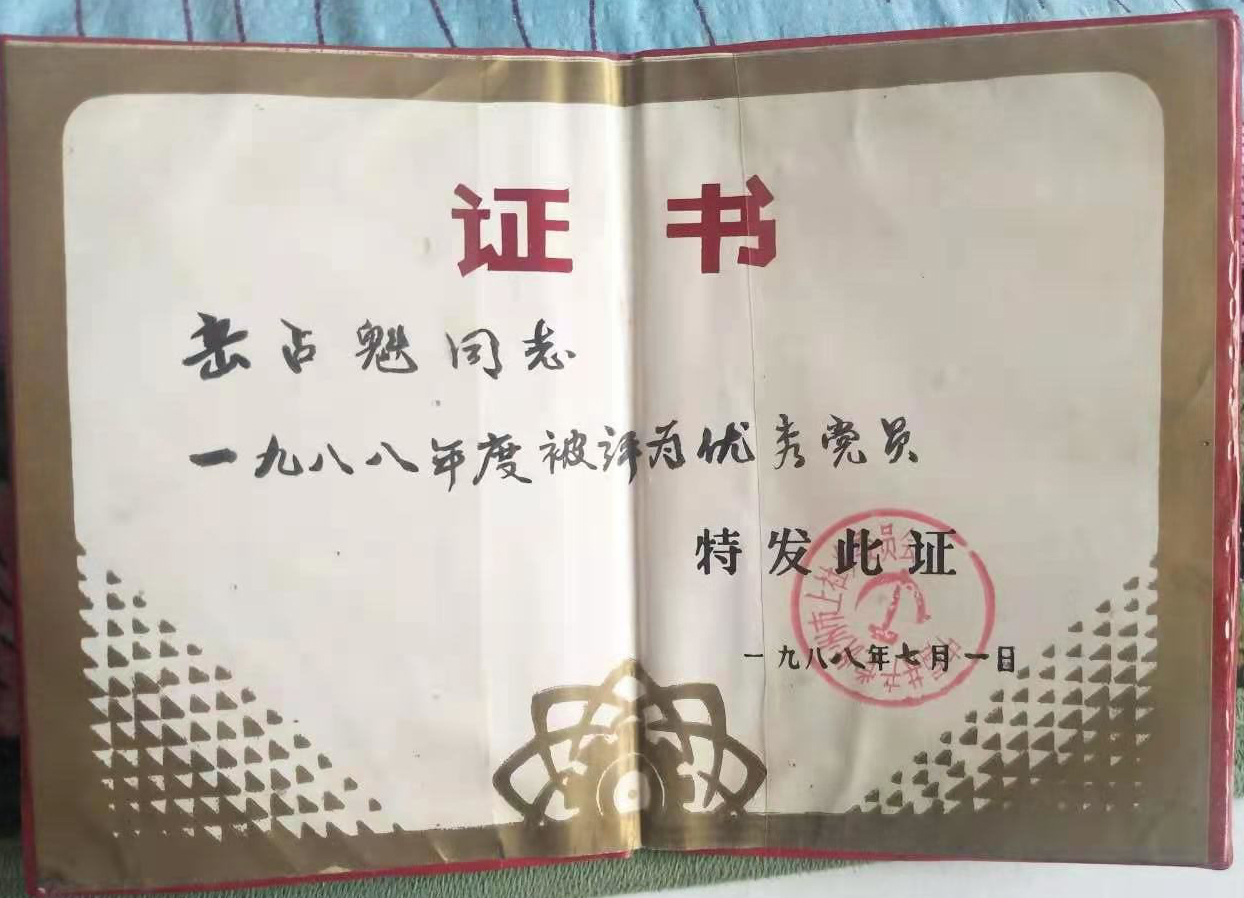 证书
岳占魁同志
一九八八年度被评为优秀党员
特发此证
一九八八年七月一日